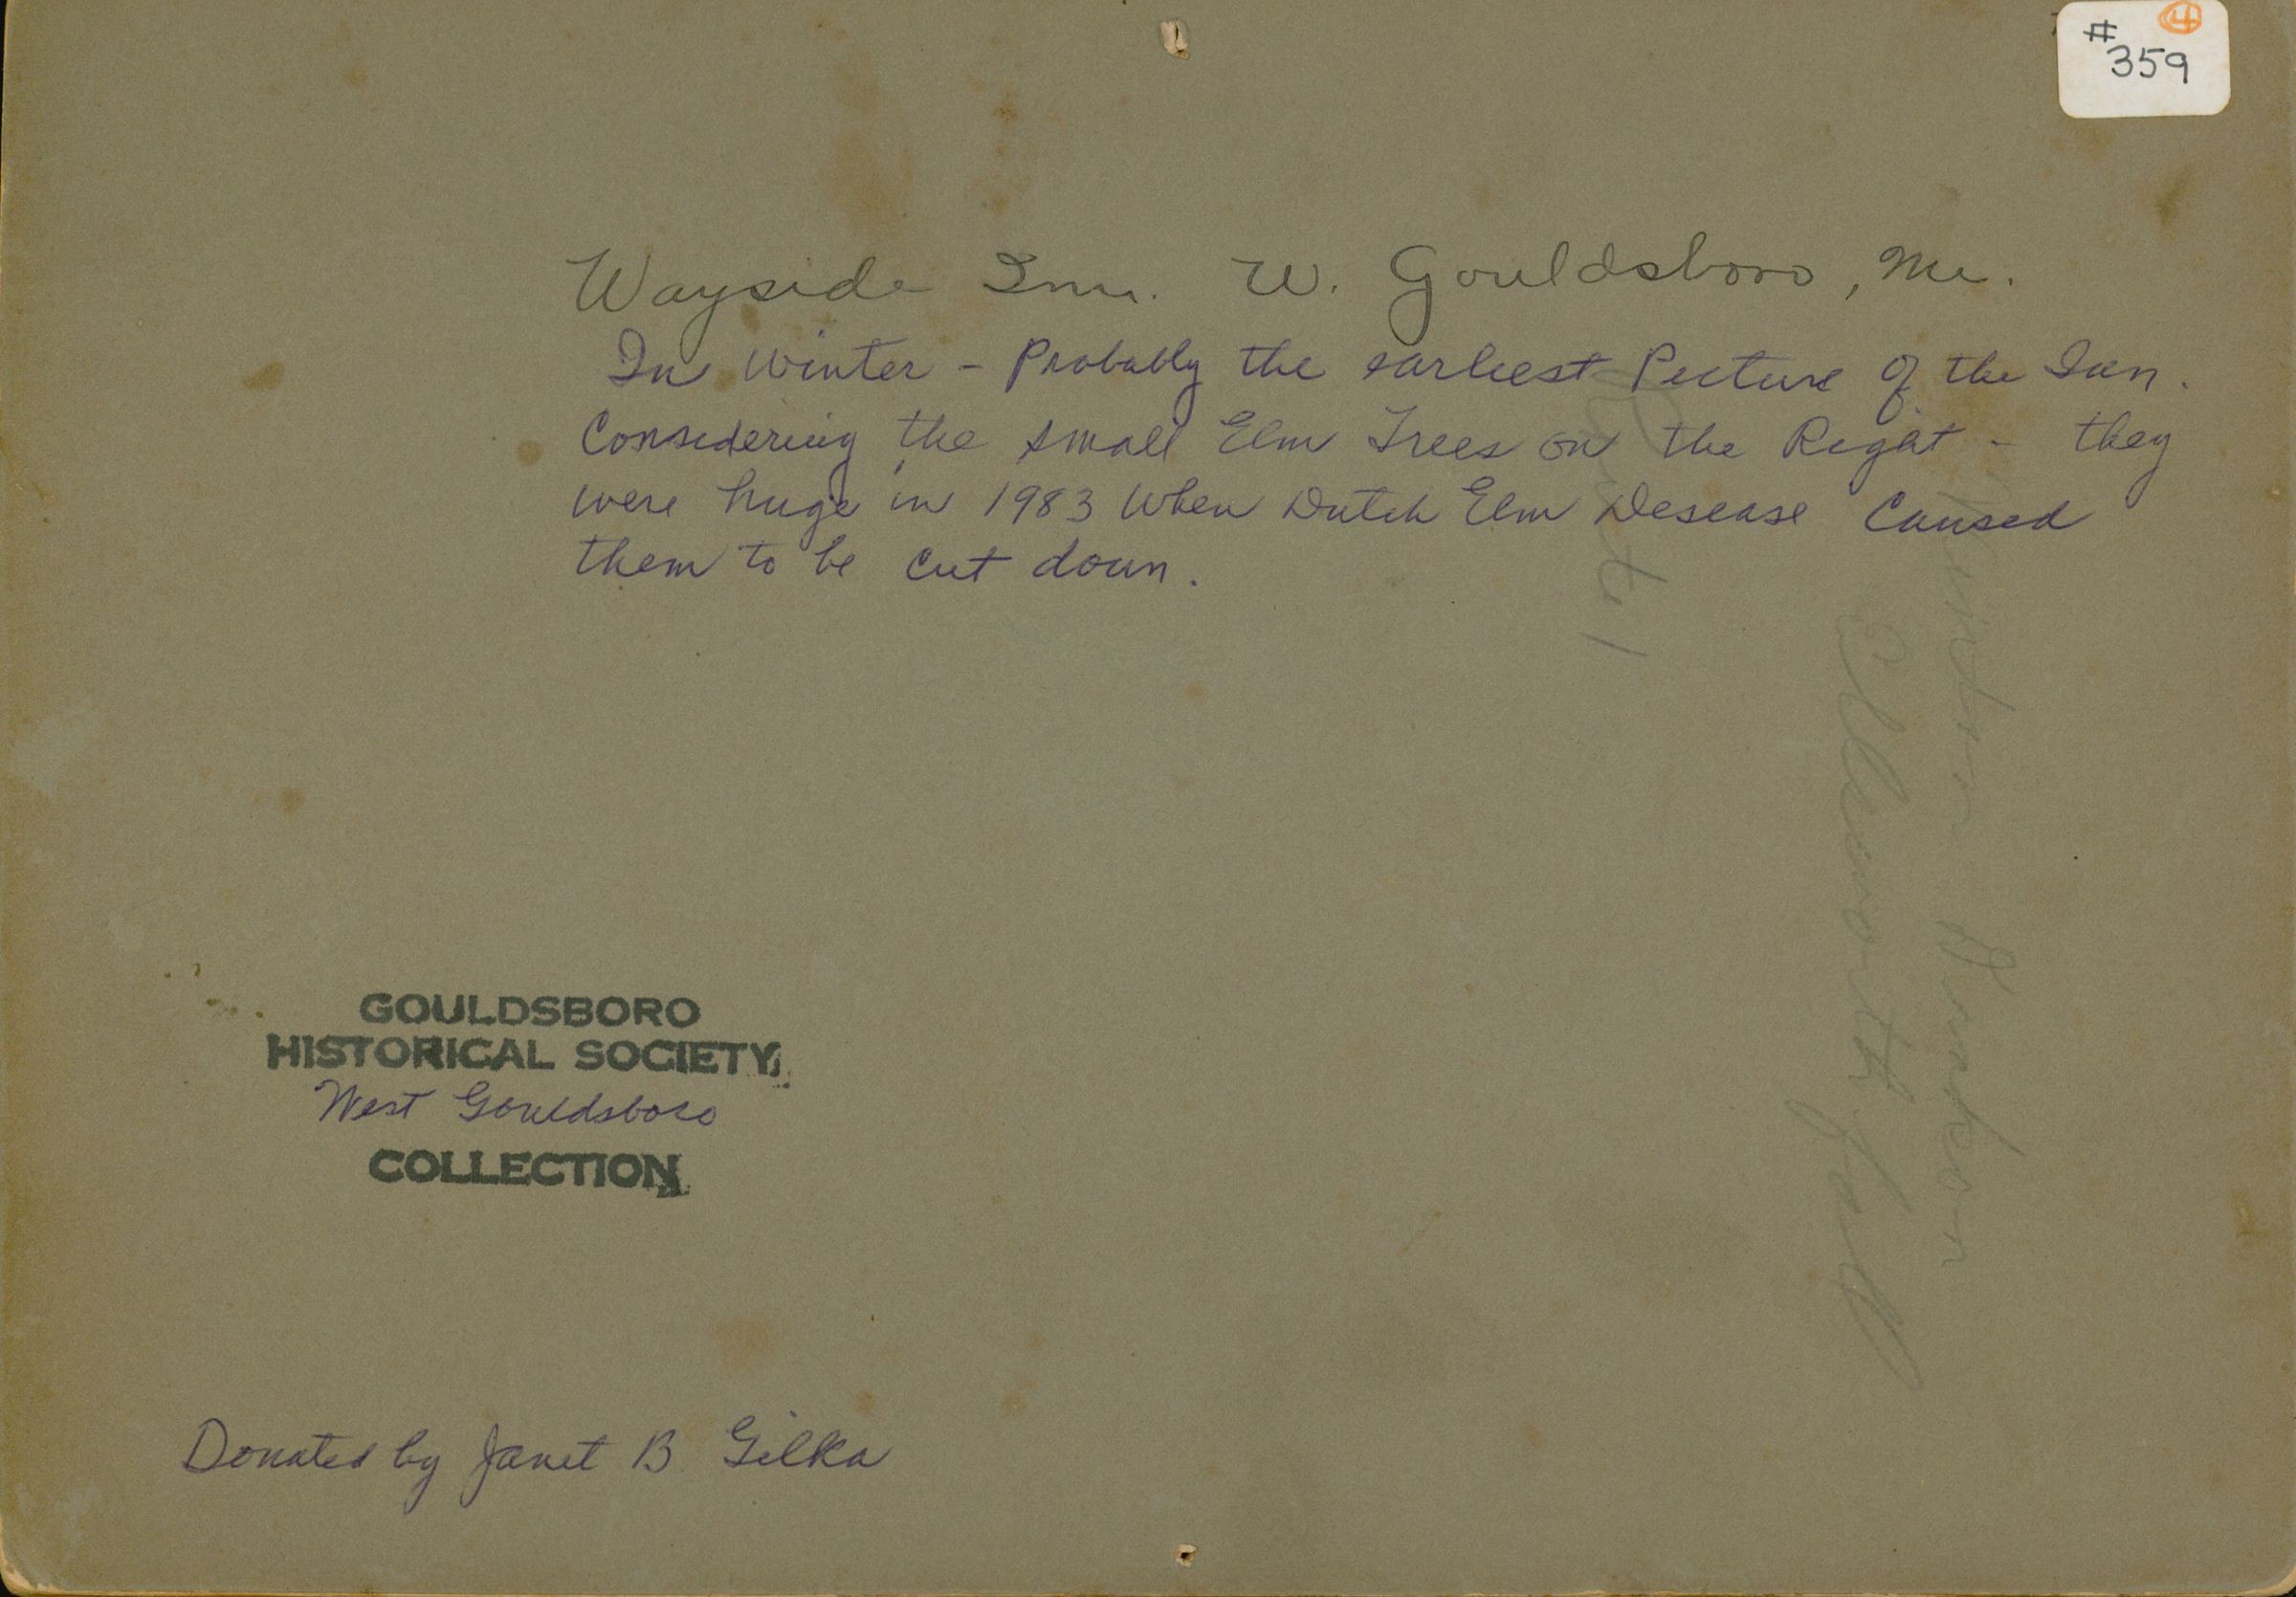 ④
#
359
Wayside Inn. W. Gouldsboro, Me.
In Winter - Probably the earliest Picture of the Inn.
Considering the small Elm Trees on the Right - they
were huge in 1983 When Dutch Elm Desease Caused
them to be cut down.
GOULDSBORO
HISTORICAL SOCIETY
West Gouldsboro
COLLECTION
Donated by Janet B Gilka
Ellsworth falls